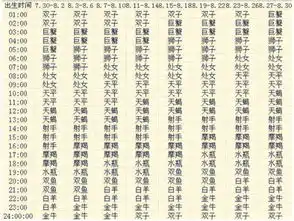 出生时间 7.30-8.2 8.3-8.6 8.7-8.10 8.11-8.14 8.15-8.18 8.19-8.22 8.23-8.26 8.27-8.30
01:00 双子 双子 双子 双子 双子 双子 双子 巨蟹
02:00 双子 双子 巨蟹 巨蟹 巨蟹 巨蟹 巨蟹 巨蟹
03:00 巨蟹 巨蟹 巨蟹 巨蟹 巨蟹 巨蟹 巨蟹 巨蟹
04:00 巨蟹 巨蟹 巨蟹 巨蟹 巨蟹 狮子 狮子 狮子
05:00 巨蟹 狮子 狮子 狮子 狮子 狮子 狮子 狮子
06:00 狮子 狮子 狮子 狮子 狮子 狮子 处女 处女
07:00 狮子 狮子 处女 处女 处女 处女 处女 处女
08:00 处女 处女 处女 处女 处女 处女 处女 处女
09:00 处女 处女 处女 处女 天平 天平 天平 天平
10:00 天平 天平 天平 天平 天平 天平 天平 天平
11:00 天平 天平 天平 天平 天平 天平 天蝎 天蝎
12:00 天蝎 天蝎 天蝎 天蝎 天蝎 天蝎 天蝎 天蝎
13:00 天蝎 天蝎 天蝎 天蝎 天蝎 天蝎 天蝎 射手
14:00 射手 射手 射手 射手 射手 射手 射手 射手
15:00 射手 射手 射手 射手 射手 射手 射手 摩羯
16:00 射手 摩羯 摩羯 摩羯 摩羯 摩羯 摩羯 摩羯
17:00 摩羯 摩羯 摩羯 摩羯 摩羯 水瓶 水瓶 水瓶
18:00 摩羯 摩羯 水瓶 水瓶 水瓶 水瓶 水瓶 水瓶
19:00 水瓶 水瓶 水瓶 水瓶 双鱼 双鱼 双鱼 双鱼
20:00 双鱼 双鱼 双鱼 双鱼 双鱼 双鱼 白羊 白羊
21:00 双鱼 双鱼 白羊 白羊 白羊 白羊 白羊 白羊
22:00 白羊 白羊 白羊 白羊 金牛 金牛 金牛 金牛
23:00 白羊 金牛 金牛 金牛 金牛 金牛 金牛 双子
24:00:00 金牛 金牛 金牛 双子 双子 双子 双子 双子